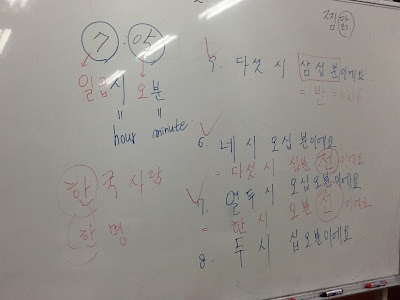 찜닭
7:05
일곱시 오분
" "
hour minute
한국 사람
한 명
5. 다섯 시 삼십 분이에요
= 반 = half
6. 네 시 오십 분이에요
= 다섯 시 십분 전이에요
7. 열두 시 오십오분이에요
= 한 시 오분 전이에요
8. 두 시 십오분이에요